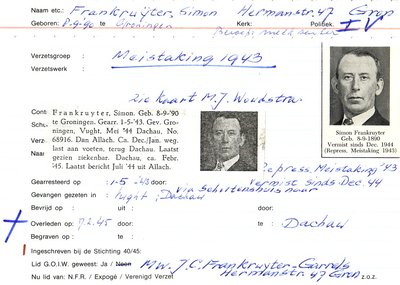 Naam etc.: Frankruÿter, Simon Hermanstr. 47 Gron
Geboren: 8-9-90 te Groningen Kerk: Politiek:
IV
Verzetsgroep : Meistaking 1943
Verzetswerk :
Zie Kaart M.J. Woudstra
Cont
Schu
Verz
Naa
Frankruyter, Simon. Geb. 8-9-'90
te Groningen. Gearr. 1-5-'43. Gev. Gro-
ningen, Vught, Mei '44 Dachau, No.
68916. Dan Allach. Ca. Dec./Jan. weg.
last aan voeten, terug Dachau. Laatst
gezien ziekenbar. Dachau, ca. Febr.
'45. Laatst bericht Juli '44 uit Allach.
Simon Frankruyter
Geb. 8-9-1890
Vermist sinds Dec. 1944
(Repress. Meistaking 1943)
Repress. Meistaking '43
Gearresteerd op : 1-5-43 door : Vermist sinds Dec. 44
via Scholtenshuis naar
Gevangen gezeten in : Vught, Dachau
Bevrijd op : uit : door :
Overleden op : 7.2.45 door : te : Dachau
Begraven op : te :
Ingeschreven bij de Stichting 40/45:
Lid G.O.I.W. geweest: Ja / Neen Mw. J.C. Frankruyter-Garrels
Nu lid van: N.F.R. / Expogé / Verenigd Verzet Hermanstr. 47 Gron. z.o.z.